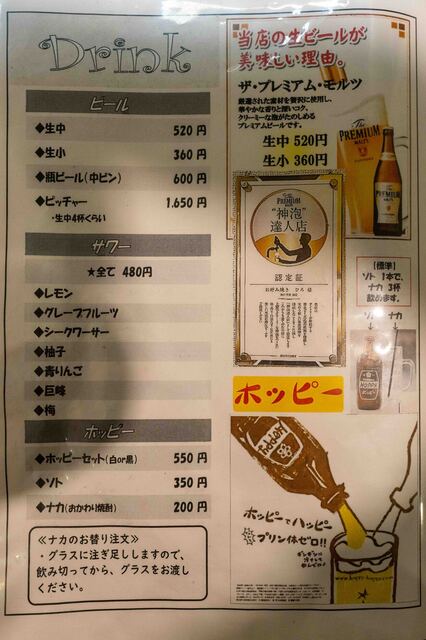 Drink
ビール
◆生中 520 円
◆生小 360 円
◆瓶ビール(中ビン) 600 円
◆ピッチャー 1.650 円
・生中4杯くらい
サワー
★全て 480円
◆レモン
◆グレープフルーツ
◆シークワーサー
◆柚子
◆青りんご
◆巨峰
◆梅
ホッピー
◆ホッピーセット(白or黒) 550 円
◆ソト 350 円
◆ナカ(おかわり焼酎) 200 円
≪ナカのお替り注文≫
・グラスに注ぎ足ししますので、
飲み切ってから、グラスをお渡し
ください。
当店の生ビールが
美味しい理由。
ザ・プレミアム・モルツ
厳選された素材を贅沢に使用し、
華やかな香りと深いコク、
クリーミーな泡がたのしめる
プレミアムビールです。
生中 520円
生小 360円
The
PREMIUM
MALT'S
PREMIUM
"神泡"
達人店
認定証
お好み焼き ひろ 様
【標準】
ソト 1本で、
ナカ 3杯
飲めます。
ソト ナカ
↓ ↓
HOPPY
ホッピー
Hoppy
ホッピーでハッピー
プリン体ゼロ!!